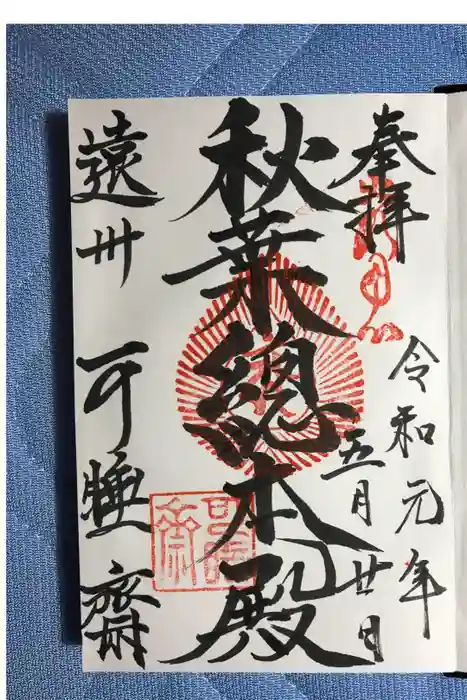 奉拝
令和元年
五月廿日
秋葉總本殿
遠州
可睡齋
可睡齋